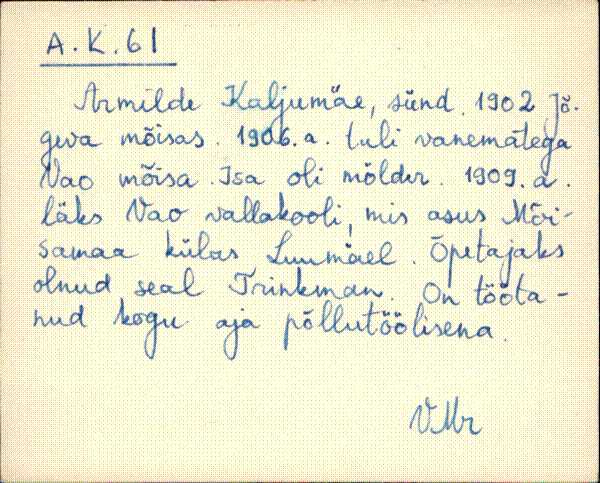 A.K.61
Armilde Kaljumäe, sünd. 1902 Jõ-
geva mõisas. 1906.a. tuli vanematega
Vao mõisa. Isa oli mölder. 1909.a.
läks Vao vallakooli, mis asus Mõi-
samaa külas Luumäel. Õpetajaks
olnud seal Trinkman. On tööta-
nud kogu aja põllutöölisena.
VMr